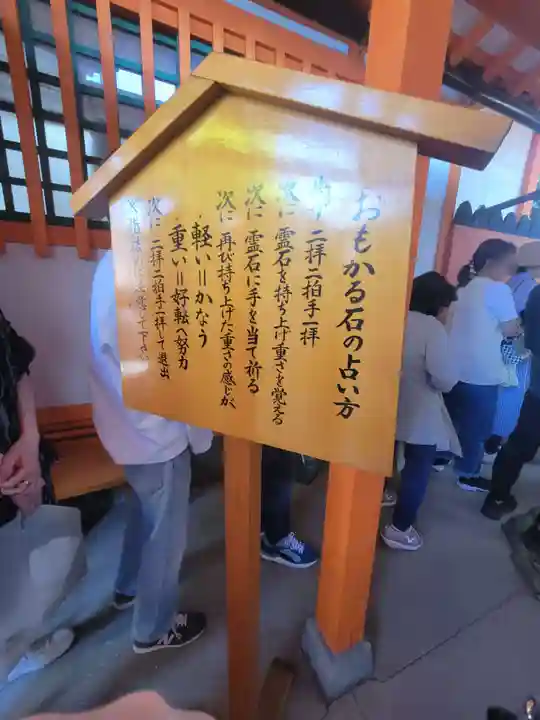 おもかる石の占い方
始めに 二拝二拍手一拝
次に 霊石を持ち上げ重さを覚える
次に 霊石に手を当て祈る
次に 再び持ち上げた重さの感じが、
・軽い＝かなう
・重い＝好転へ努力
次に 二拝二拍手一拝して退出